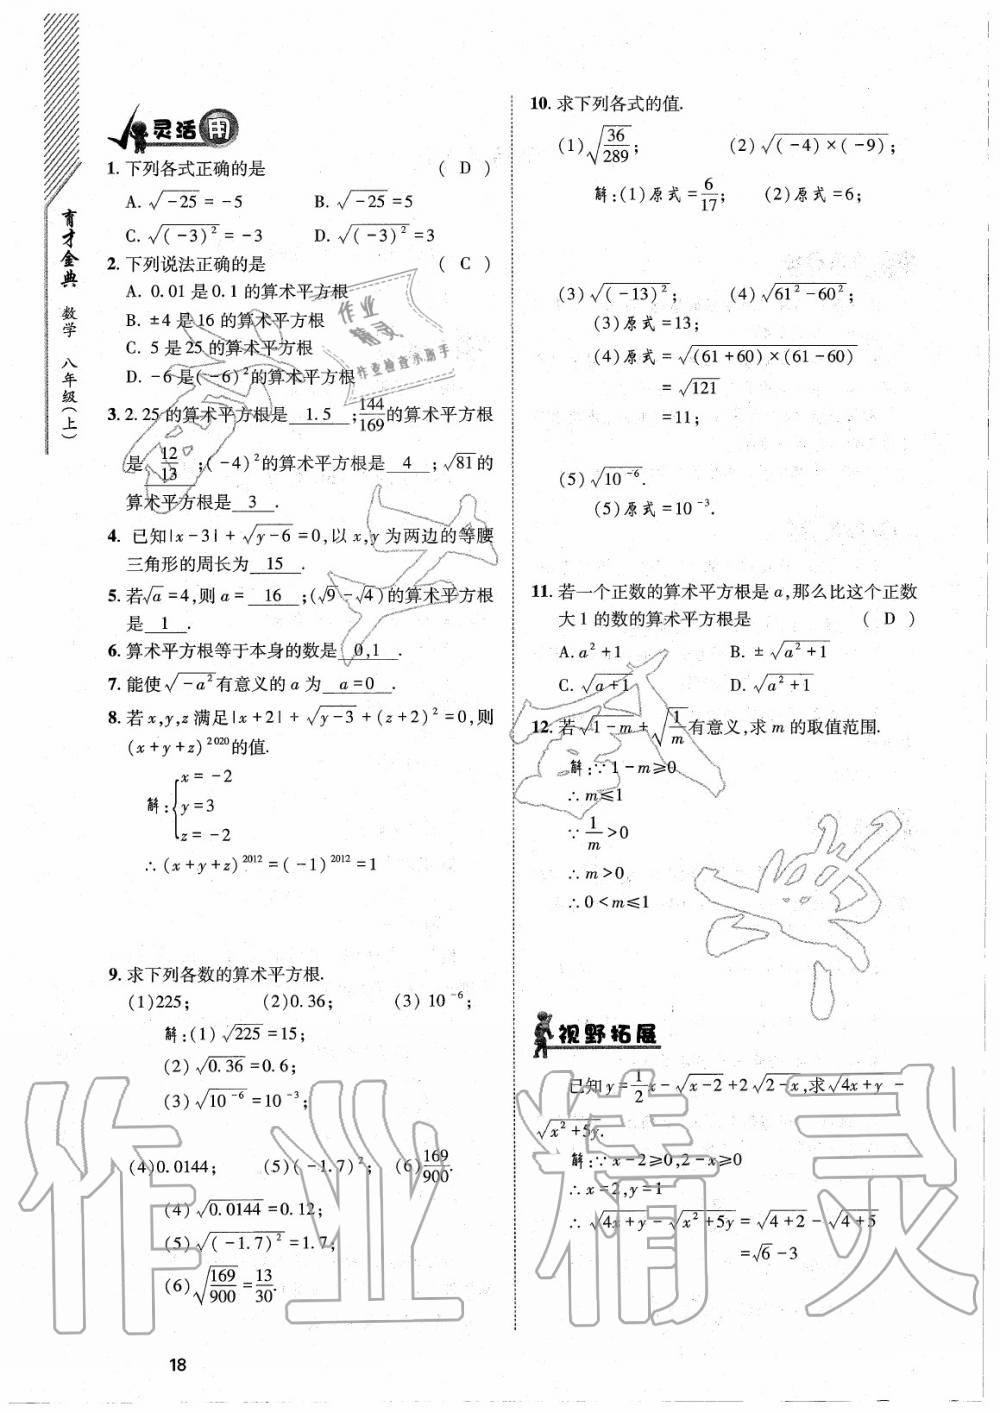 育才金典 数学 八年级(上)
灵活用
1. 下列各式正确的是 ( D )
A. √(-25) = -5 B. √(-25) = 5
C. √((-3)²) = -3 D. √((-3)²) = 3
2. 下列说法正确的是 ( C )
A. 0.01 是 0.1 的算术平方根
B. ±4 是 16 的算术平方根
C. 5 是 25 的算术平方根
D. -6 是(-6)²的算术平方根
3. 2.25 的算术平方根是 1.5 ; 144/169 的算术平方根
是 12/13 ;(-4)²的算术平方根是 4 ; √81的
算术平方根是 3 .
4. 已知|x-3|+√(y-6)=0,以 x,y 为两边的等腰
三角形的周长为 15 .
5. 若√a=4,则 a= 16 ;(√9-√4)的算术平方根
是 1 .
6. 算术平方根等于本身的数是 0,1 .
7. 能使√(-a²)有意义的 a 为 a=0 .
8. 若 x,y,z 满足|x+2|+√(y-3)+(z+2)²=0,则
(x+y+z)²⁰²⁰的值.
x=-2
解: y=3
z=-2
∴(x+y+z)²⁰¹²=(-1)²⁰¹²=1
9. 求下列各数的算术平方根.
(1)225; (2)0.36; (3) 10⁻⁶;
解:(1)√225=15;
(2)√0.36=0.6;
(3)√(10⁻⁶)=10⁻³;
(4)0.0144; (5)(-1.7)²; (6)169/900.
(4)√0.0144=0.12;
(5)√((-1.7)²)=1.7;
(6)√(169/900)=13/30.
18
10. 求下列各式的值.
(1)√(36/289); (2)√((-4)×(-9));
解:(1)原式=6/17; (2)原式=6;
(3)√((-13)²); (4)√(61²-60²);
(3)原式=13;
(4)原式=√((61+60)×(61-60))
=√121
=11;
(5)√(10⁻⁶).
(5)原式=10⁻³.
11. 若一个正数的算术平方根是 a,那么比这个正数
大 1 的数的算术平方根是 ( D )
A. a²+1 B. ±√(a²+1)
C. √(a+1) D. √(a²+1)
12. 若√(1-m)+√(1/m)有意义,求 m 的取值范围.
解:∵1-m≥0
∴m≤1
∵1/m>0
∴m>0
∴0<m≤1
视野拓展
已知 y=1/2x-√(x-2)+2√(2-x),求√(4x+y)-
√(x²+5y).
解:∵x-2≥0,2-x≥0
∴x=2,y=1
∴√(4x+y)-√(x²+5y)=√(4+2)-√(4+5)
=√6-3
作业精灵
作业检查小助手
作业精灵